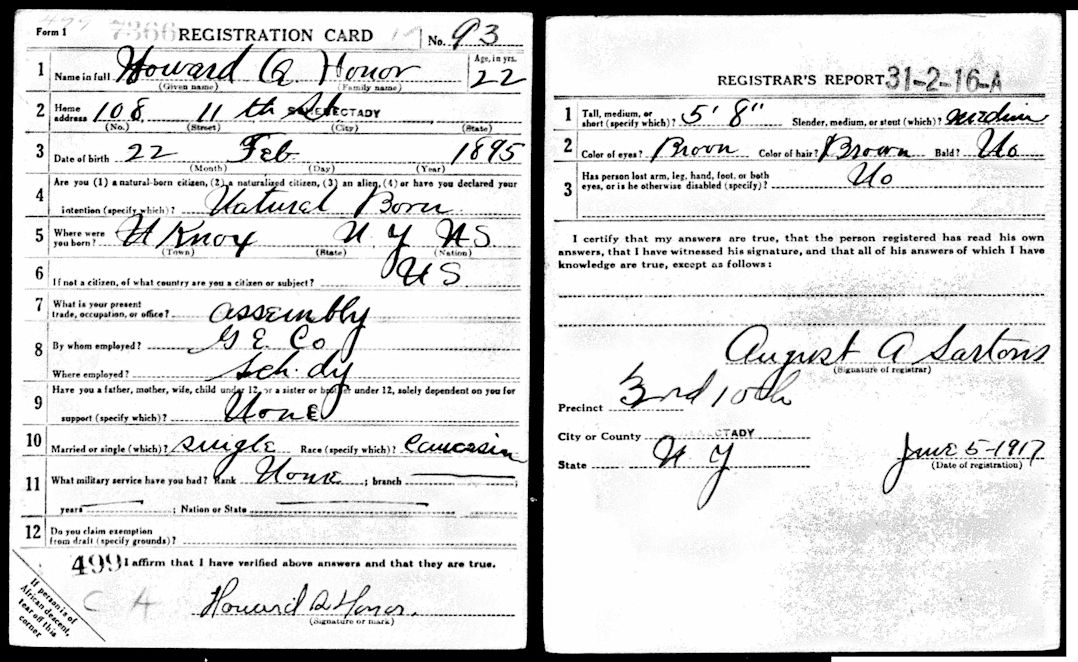 Form 1 7366 REGISTRATION CARD No. 93
1 Name in full Howard A Honor Age, in yrs. 22
(Given name) (Family name)
2 Home address 108 11 th SCHENECTADY
(No.) (Street) (City) (State)
3 Date of birth 22 Feb 1895
(Month) (Day) (Year)
4 Are you (1) a natural-born citizen, (2) a naturalized citizen, (3) an alien, (4) or have you declared your
intention (specify which)? Natural Born
5 Where were you born? N Knox N Y US
(Town) (State) (Nation)
6 If not a citizen, of what country are you a citizen or subject? US
7 What is your present trade, occupation, or office? assembly
8 By whom employed? G E. Co
Where employed? Sch. dy
9 Have you a father, mother, wife, child under 12, or a sister or brother under 12, solely dependent on you for
support (specify which)? None
10 Married or single (which)? single Race (specify which)? Caucasin
11 What military service have you had? Rank None ; branch ;
years ; Nation or State
12 Do you claim exemption
from draft (specify grounds)?
499 I affirm that I have verified above answers and that they are true.
C A Howard A Honor.
(Signature or mark)
If person is of
African descent,
tear off this
corner
REGISTRAR'S REPORT 31-2-16-A
1 Tall, medium, or short (specify which)? 5' 8" Slender, medium, or stout (which)? medium
2 Color of eyes? Brown Color of hair? Brown Bald? No
3 Has person lost arm, leg, hand, foot, or both
eyes, or is he otherwise disabled (specify)? No
I certify that my answers are true, that the person registered has read his own
answers, that I have witnessed his signature, and that all of his answers of which I have
knowledge are true, except as follows:
August A Sartoris
(Signature of registrar)
Precinct 3rd 10th
City or County TADY
State N Y June 5-1917
(Date of registration)